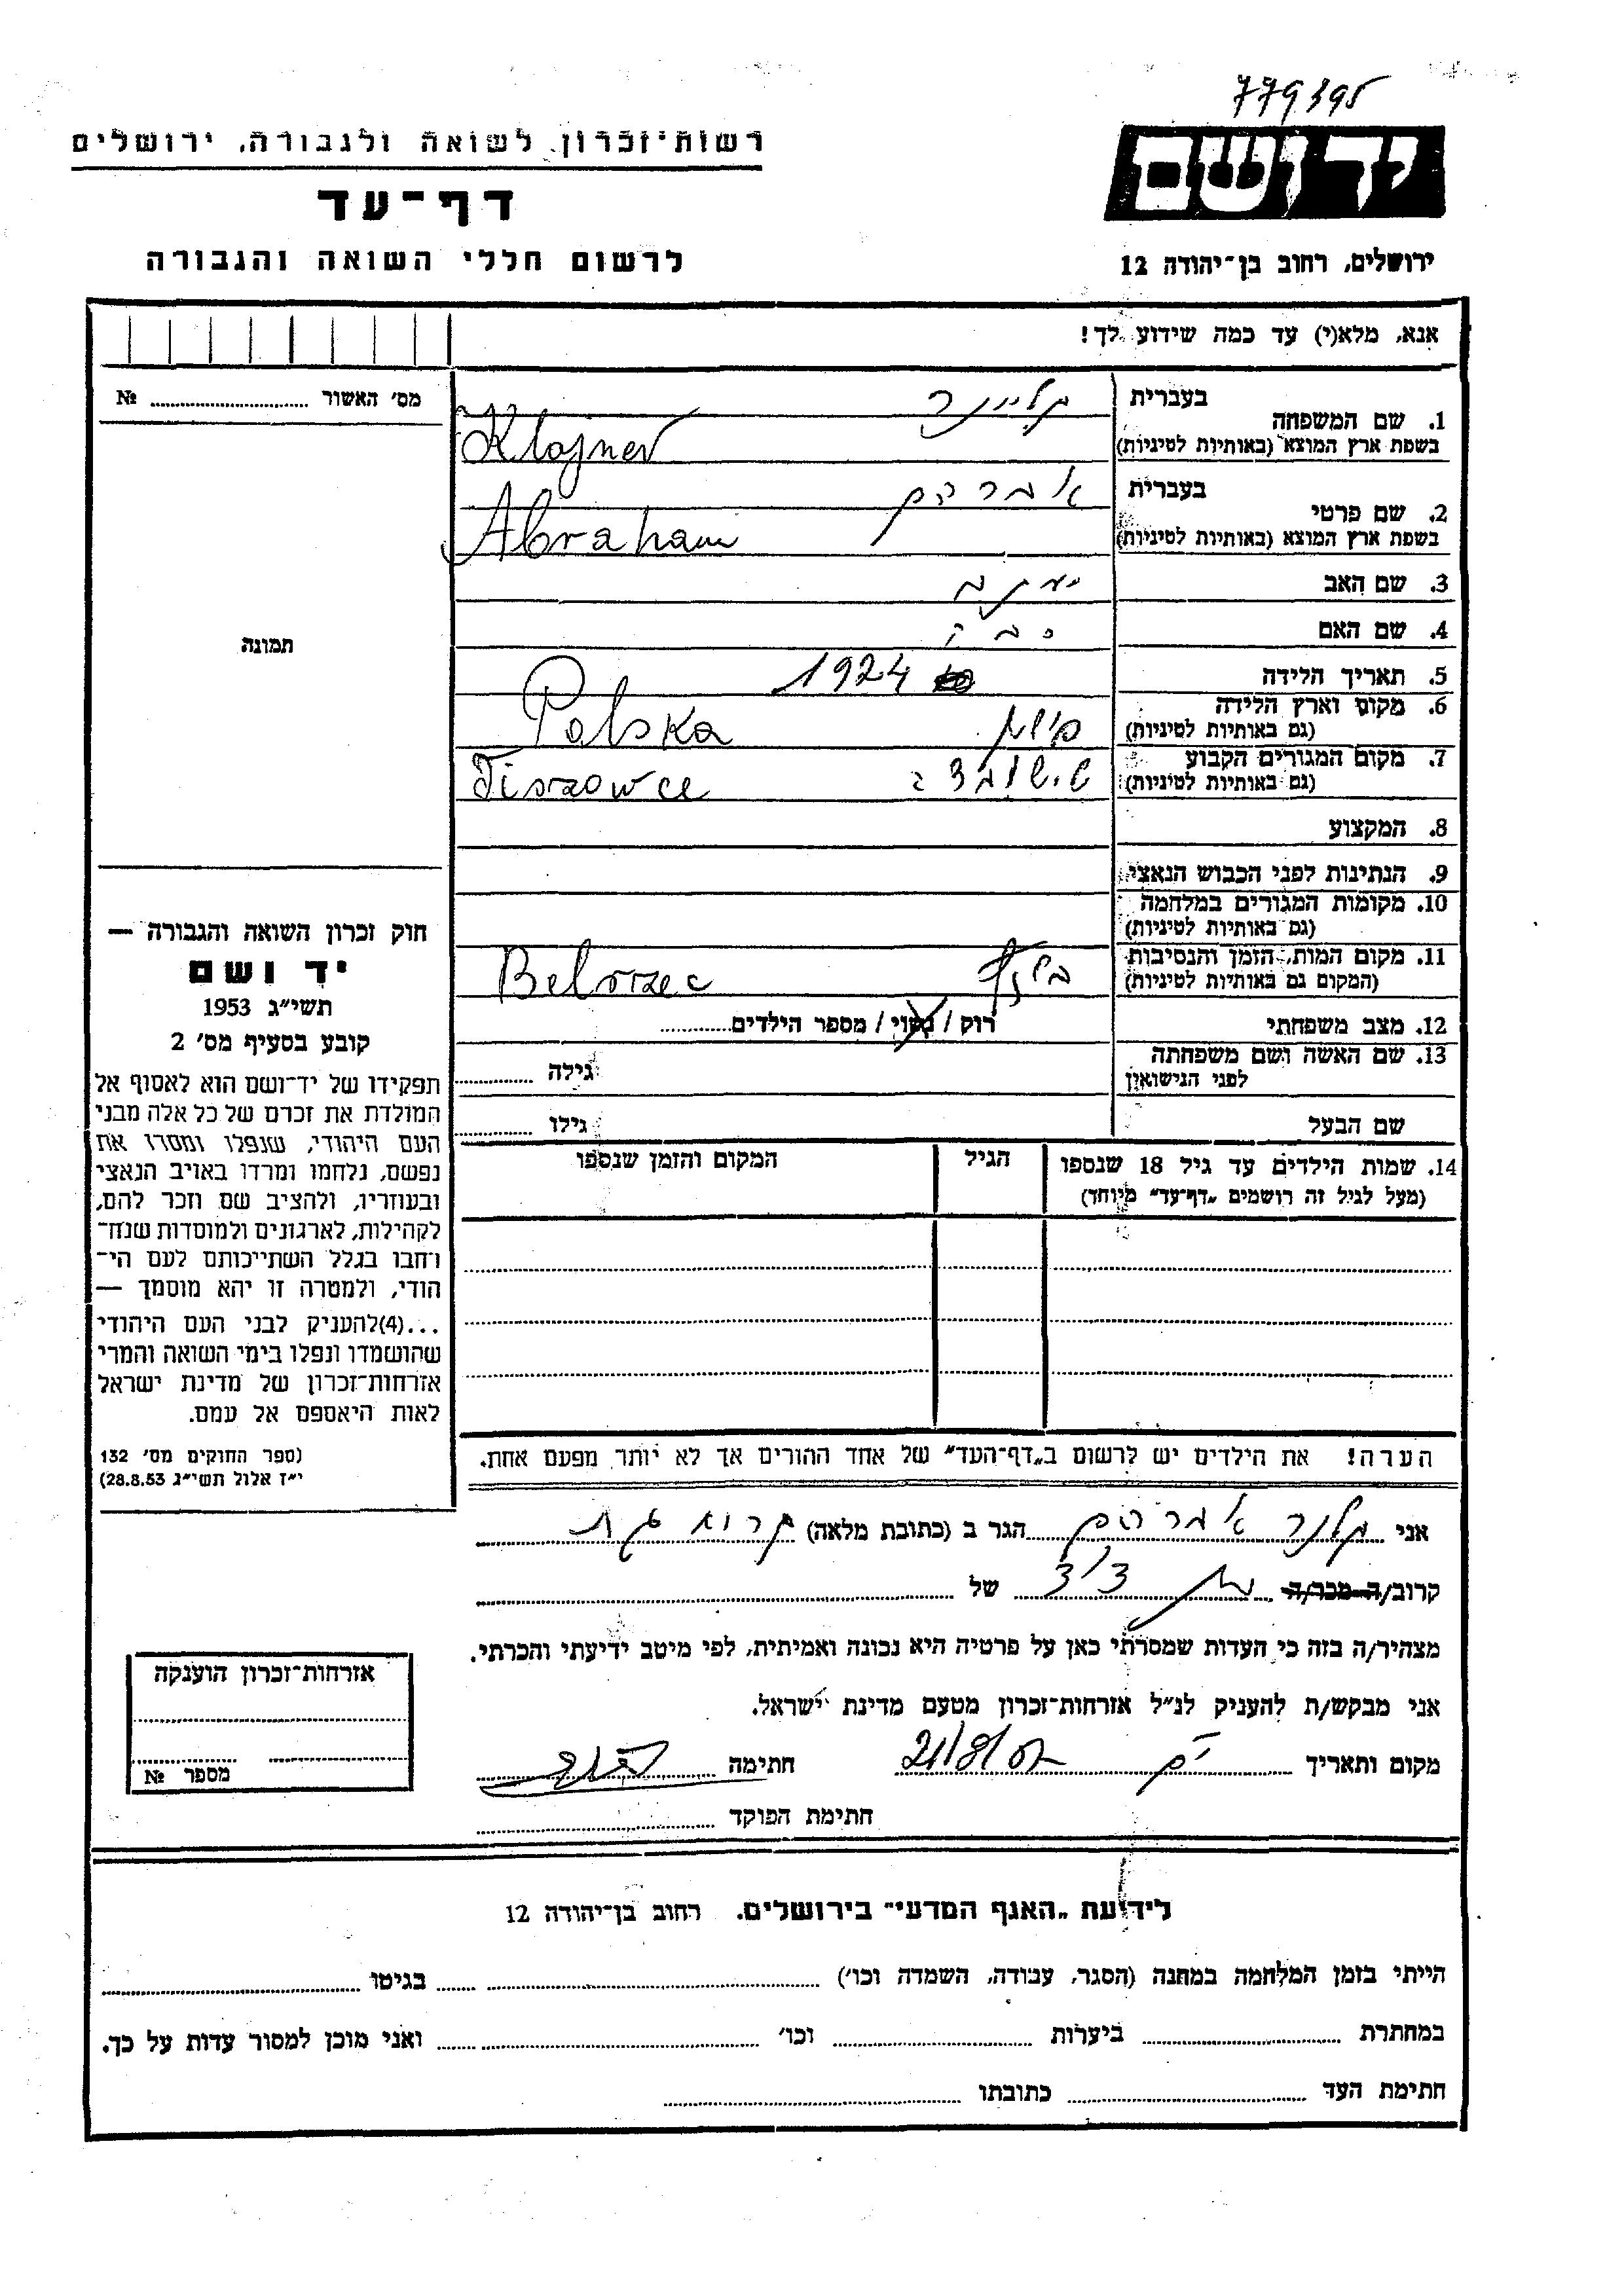 779395
יד ושם
ירושלים, רחוב בן־יהודה 12
רשות־זכרון לשואה ולגבורה, ירושלים
דף־עד
לרשום חללי השואה והגבורה
אנא, מלא(י) עד כמה שידוע לך!
מס׳ האשור № ............
תמונה
1. שם המשפחה בעברית
קליינר
בשפת ארץ המוצא (באותיות לטיניות)
Klajner
2. שם פרטי בעברית
אברהם
בשפת ארץ המוצא (באותיות לטיניות)
Abraham
3. שם האב יעקב
4. שם האם
5. תאריך הלידה 1924
6. מקום וארץ הלידה
(גם באותיות לטיניות)
Polska
7. מקום המגורים הקבוע
(גם באותיות לטיניות)
Tiszowce
8. המקצוע
9. הנתינות לפני הכבוש הנאצי
10. מקומות המגורים במלחמה
(גם באותיות לטיניות)
11. מקום המות, הזמן והנסיבות
(המקום גם באותיות לטיניות)
Belrzec
12. מצב משפחתי רוק / נשוי / מספר הילדים............
13. שם האשה ושם משפחתה
לפני הנישואין
גילה ............
שם הבעל גילו ............
14. שמות הילדים עד גיל 18 שנספו הגיל המקום והזמן שנספו
(מעל לגיל זה רושמים „דף־עד״ מיוחד)
הערה! את הילדים יש לרשום ב„דף־העד״ של אחד ההורים אך לא יותר מפעם אחת.
חוק זכרון השואה והגבורה —
יד ושם
תשי״ג 1953
קובע בסעיף מס׳ 2
תפקידו של יד־ושם הוא לאסוף אל
המולדת את זכרם של כל אלה מבני
העם היהודי, שנפלו ומסרו את
נפשם, נלחמו ומרדו באויב הנאצי
ובעוזריו, ולהציב שם וזכר להם,
לקהילות, לארגונים ולמוסדות שנח־
רחבו בגלל השתייכותם לעם הי־
הודי, ולמטרה זו יהא מוסמך —
...(4)להעניק לבני העם היהודי
שהושמדו ונפלו בימי השואה והמרי
אזרחות־זכרון של מדינת ישראל
לאות היאספם אל עמם.
(ספר החוקים מס׳ 132
י״ז אלול תשי״ג 28.8.53)
אני קלנר אברהם הגר ב (כתובת מלאה)
קרוב/ה מכר/ה של
מצהיר/ה בזה כי העדות שמסרתי כאן על פרטיה היא נכונה ואמיתית, לפי מיטב ידיעתי והכרתי.
אני מבקש/ת להעניק לנ״ל אזרחות־זכרון מטעם מדינת ישראל.
מקום ותאריך חתימה
חתימת הפוקד
אזרחות־זכרון הוענקה
מספר №
לידיעת „האגף המדעי״ בירושלים. רחוב בן־יהודה 12
הייתי בזמן המלחמה במחנה (הסגר, עבודה, השמדה וכו׳) ............ בגיטו ............
במחתרת ............ ביערות ............ וכו׳ ............ ואני מוכן למסור עדות על כך.
חתימת העד ............ כתובתו ............